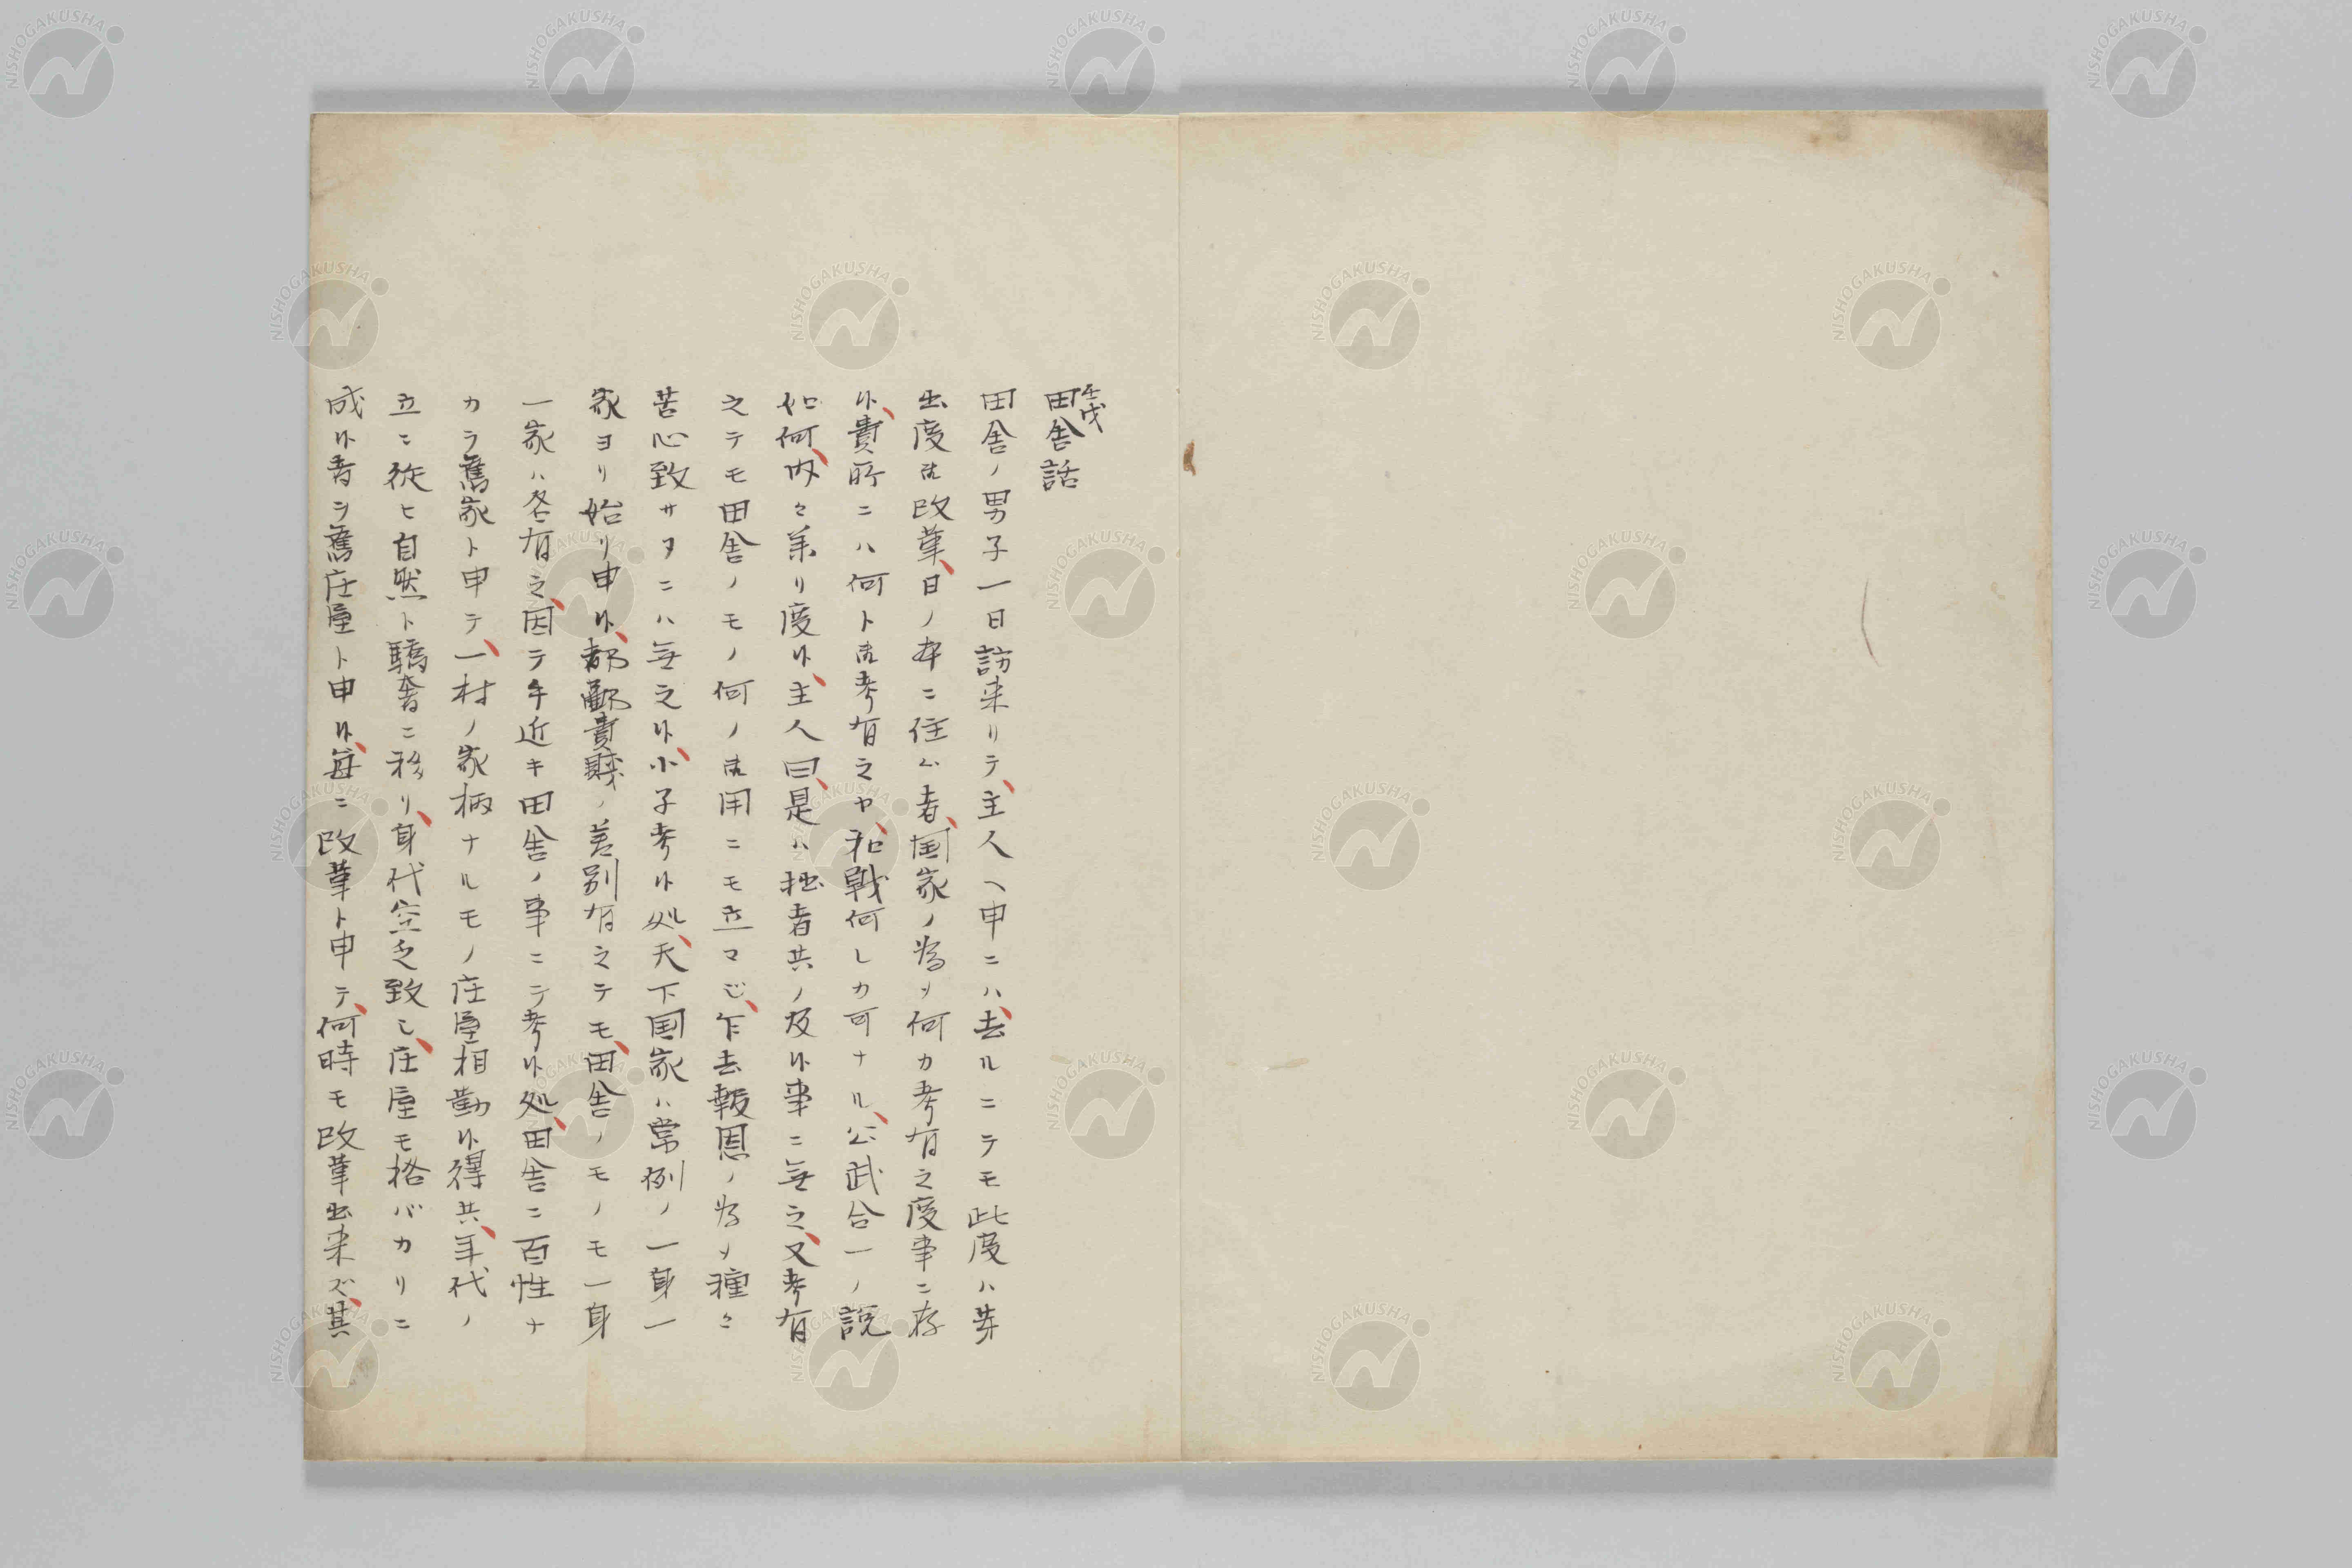 壬戌
田舎話
田舎ノ男子一日訪来リテ、主人ヘ申ニハ、去ルニテモ此度ハ英
出度御改革、日ノ本ニ住ム者、国家ノ為ヲ何カ考有之度事ニ存
候、貴所ニハ何ト御考有之ヤ、和戦何レカ可ナル、公武合一ノ説
如何、内々承リ度候、主人曰、是ハ拙者共ノ及候事ニ無之、又考有
之テモ田舎ノモノ何ノ御用ニモ立マジ、乍去報恩ノ為ヲ種々
苦心致サヌニハ無之候、小子考候処、天下国家ハ常例ノ一身一
家ヨリ始リ申候、都鄙貴賤ノ差別有之テモ、田舎ノモノモ一身
一家ハ各有之、因テ手近キ田舎ノ事ニテ考候処、田舎ニ百性ナ
カラ舊家ト申テ、一村ノ家柄ナルモノ庄屋相勤候得共、年代ノ
立ニ従ヒ自然ト驕奢ニ移リ、身代空乏致シ、庄屋モ格バカリニ
成候者ヲ舊庄屋ト申候、毎ニ改革ト申テ、何時モ改革出来ズ、其
NISHOGAKUSHA